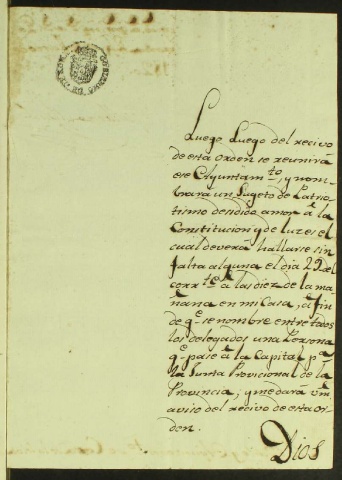 Luego, Luego del recivo
de esta orden se reunirá
ese Ayuntamto, y nom-
brará un Sugeto de Patrio-
tismo desidido, amor á la
Constitucion y de luzes el
cual deverá hallarse sin
falta alguna el dia 29 del
corrte á las diez de la ma-
ñana en mi Casa, á fin
de qe se nombre entre todos
los delegados una Persona
qe pase á la Capital pa
la Junta Provicional de la
Provincia, y me dará
aviso del recivo de esta or-
den.
Dios